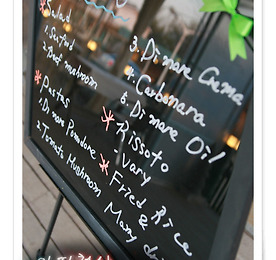 * Salad
1. Seafood
2. Beef mushroom
* Pastas
1. Di mare Pomodore
2. Tomato Mushroom
3. Di mare Crema
4. Carbonara
5. Di mare Oil
* Rissoto
. Vary
* Fried Rice
Many